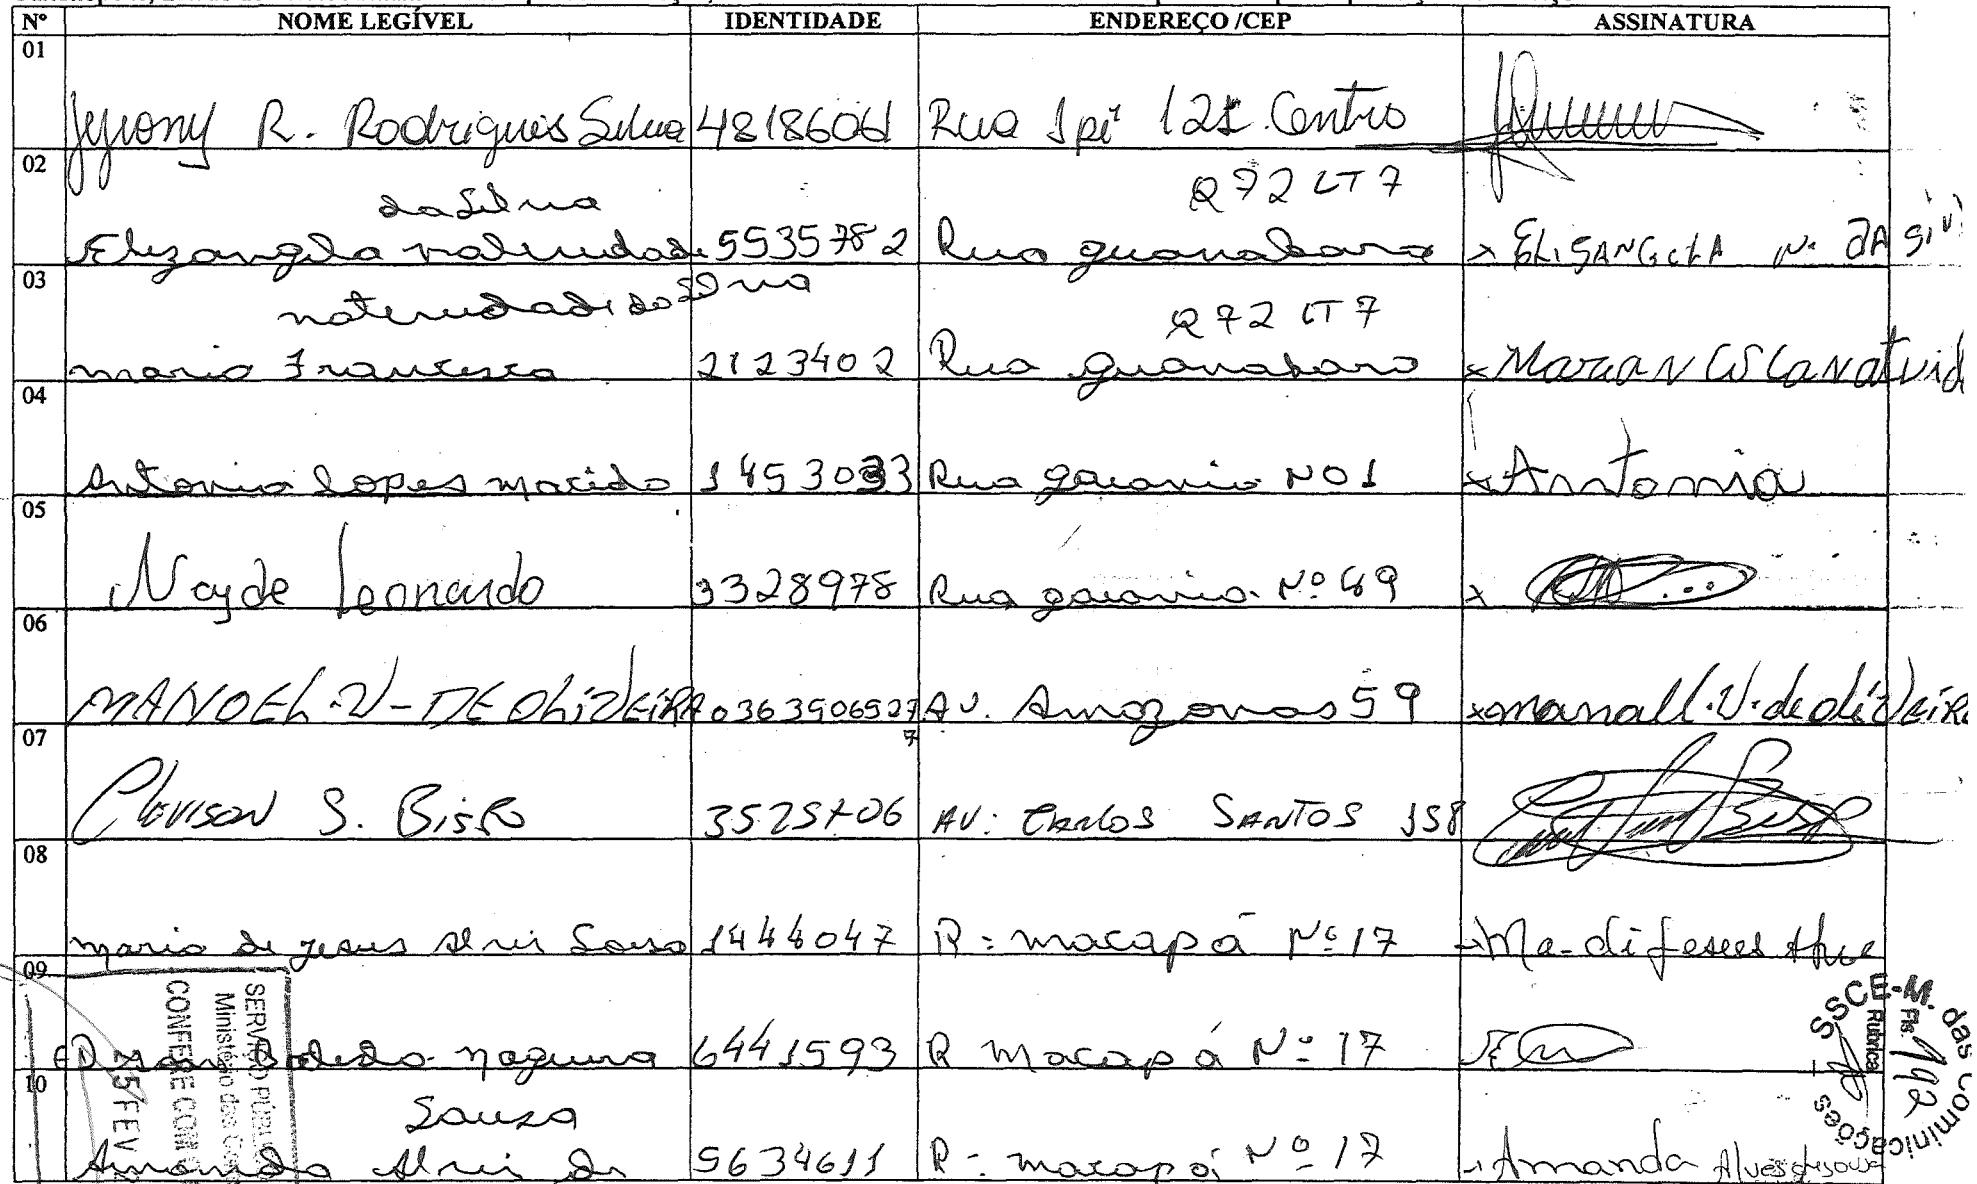 Nº NOME LEGÍVEL IDENTIDADE ENDEREÇO /CEP ASSINATURA
01
Jeyrony R. Rodrigues Silva 4818601 Rua Ipê 121 Centro
02
da Silva Q 72 LT 7
Elizangela natividade 5535782 Rua guanabara x ELISANGELA N. DA Silv
03
natividade da Silva Q 72 LT 7
maria Francisca 2123402 Rua guanabara x
04
Antonia Lopes macido 1453033 Rua goiania Nº 1 x Antonia
05
Nayde Leonardo 3328978 Rua goiania Nº 49 x
06
MANOEL V - DE OLiVEiRA 0363906527 AV. Amazonas 59 x manoell V. de oliVEiRa
7
07
Clevison S. Bispo 3525706 AV: CARLOS SANTOS 158
08
maria de jesus Alvis Sousa 1444047 R: macapá Nº 17
09
noguera 6441593 R macapá Nº 17
10
Souza
Amanda Alvis de 5634611 R: macapá Nº 17 Amanda Alves de sousa
SERVIÇO PÚBL
Ministério das Co
CONFERE COM O
5 FEV
SSCE-M. das Cominicações
Fls. 192
Rubrica